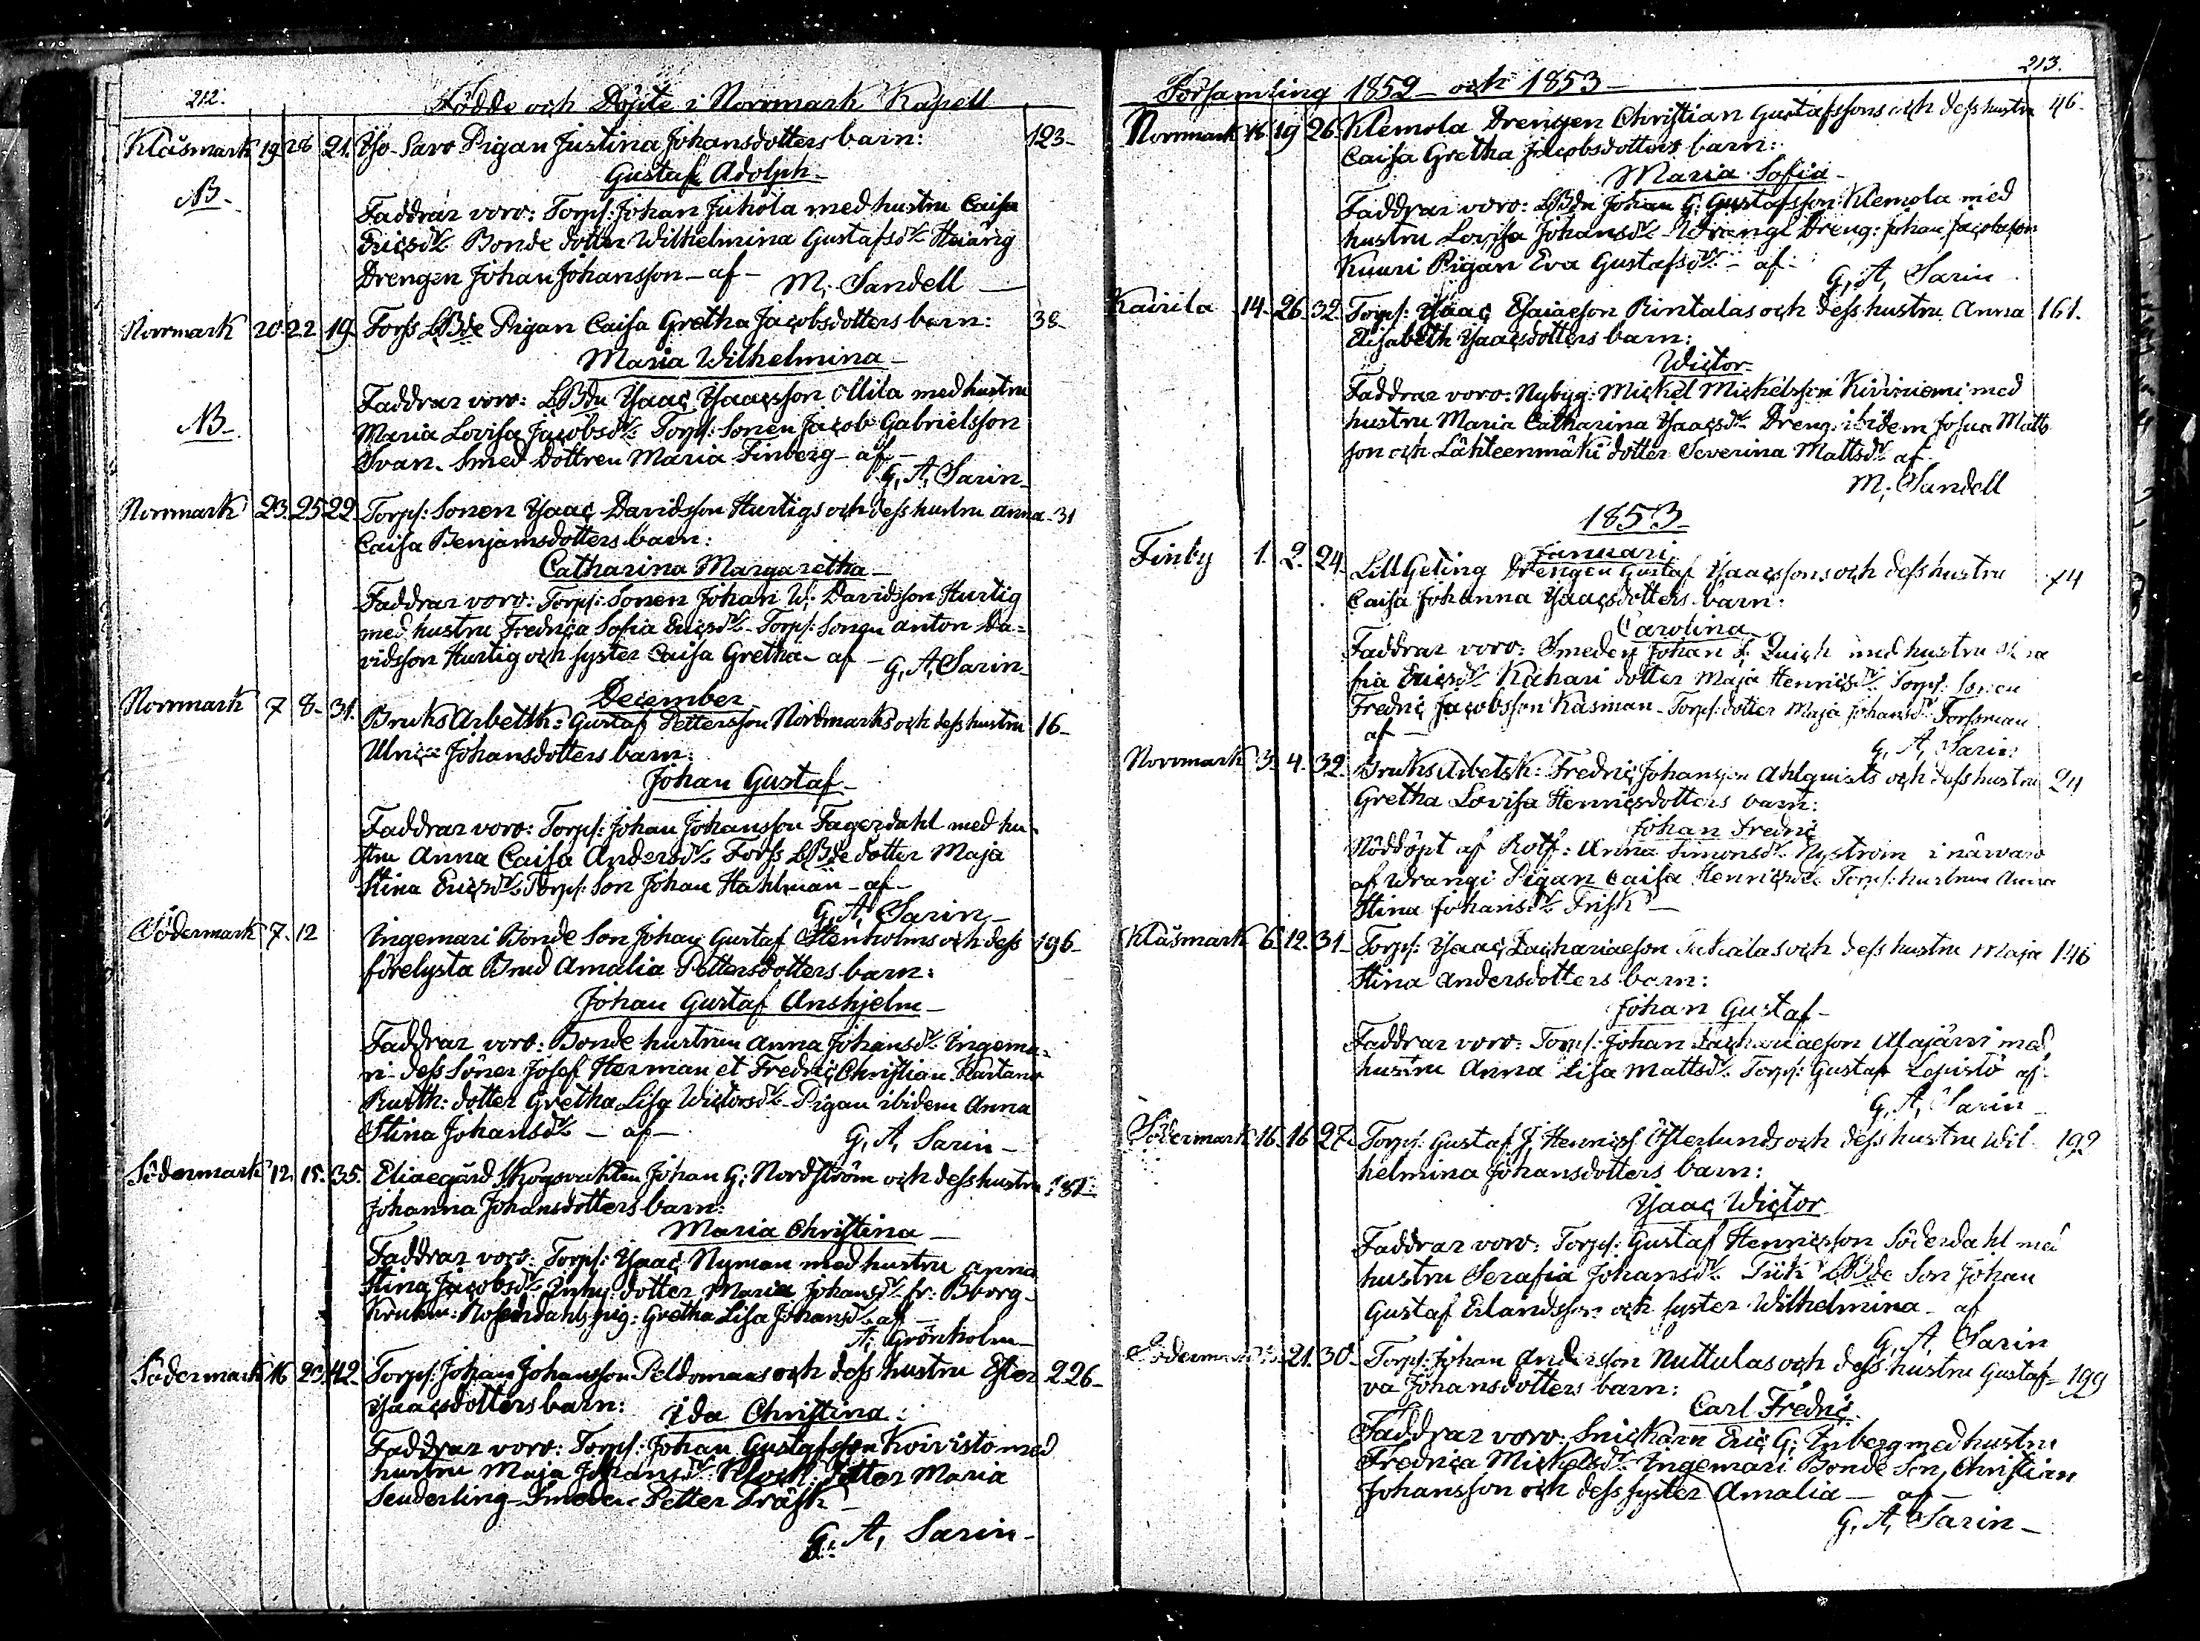 212.
Födde och Döpte i Norrmark Kapell
Klåsmark 19 26 21. Yso-Savo Pigan Justina Johansdotters barn: 123-
Gustaf Adolph-
NB- Faddrar voro: Torp: Johan Juhola med hustru Caisa
Ericsdr Bonde dotter Wilhelmina Gustafsdr
Drengen Johan Johansson - af - M. Sandell
Norrmark 20. 22. 19. Torfs LBde Pigan Caisa Gretha Jacobsdotters barn: 38-
Maria Wilhelmina-
Faddrar voro: LBdn Ysaac Ysaacsson Ollila med hustru
NB- Maria Lovisa Jacobsdr Torp: Sonen Jacob Gabrielsson
Svan. Smed dottren Maria Finberg - af -
G. A. Sarin-
Norrmark 23. 25. 29. Torp: Sonen Ysaac Davidsson Hurtigs och dess hustru Anna 31
Caisa Benjamsdotters barn:
Catharina Margaretha-
Faddrar voro: Torp: Sonen Johan W: Davidsson Hurtig
med hustru Fredrica Sofia Ericsdr Torp: Sonen Anton Da=
vidsson Hurtig och syster Caisa Gretha - af - G. A. Sarin-
December
Norrmark 7 8- 31. Bruks Arbetsk: Gustaf Pettersson Nordmarks och dess hustru 16-
Ulrica Johansdotters barn:
Johan Gustaf-
Faddrar voro: Torp: Johan Johansson Fagerdahl med hu-
stru Anna Caisa Andersdr Torfs LBde dotter Maja
Stina Ericsdr Torp: Son Johan Hahlman - af -
G. A. Sarin-
Södermark 7. 12 Ingemari Bonde Son Johan Gustaf Stenholms och dess 196-
förelysta Brud Amalia Pettersdotters barn:
Johan Gustaf Anshjelm-
Faddrar voro: Bonde hustrun Anna Johansdr Ingema-
ri dess Söner Josef Herman et Fredric Christian Kartano
Rusth: dotter Gretha Lisa Wictorsdr Pigan ibidem Anna
Stina Johansdr - af - G. A. Sarin-
Södermark 12. 15. 35. Eliaegård Skogsvakten Johan G: Nordström och dess hustru 181-
Johanna Johansdotters barn:
Maria Christina-
Faddrar voro: Torp: Ysaac Nyman med hustru Anna
Stina Jacobsdr dotter Maria Johansdr fr: Bborg-
Rosendahls pig: Gretha Lisa Johansdr af -
A. Grönholm-
Södermark 16 20. 42. Torp: Johan Johansson Peldomaas och dess hustru Ester 226-
Ysaacsdotters barn: Ida Christina:
Faddrar voro: Torp: Johan Gustafsson Koivisto med
hustru Maja Johansdr Klock: dotter Maria
Senderling - Smeden Petter Träsk -
G. A. Sarin-
213.
Församling 1852 - och 1853-
Norrmark 16 19 26 Klemola Drengen Christian Gustafssons och dess hustru 46-
Caisa Gretha Jacobsdotters barn:
Maria Sofia-
Faddrar voro: LBdn Johan G: Gustafsson Klemola med
hustru Lovisa Johansdr Wrangi Dreng: Johan Jacobsson
Kuuri Pigan Eva Gustafsdr - af -
G. A. Sarin
Kairila 14. 26. 32. Torp: Ysaac Esaiaeson Rintalas och dess hustru Anna 161.
Elisabeth Ysaacsdotters barn:
Wictor-
Faddrar voro: Nybyg: Mickel Mickelsson Kiviniemi med
hustru Maria Catharina Ysaacsdr Dreng ibidem Josua Matts
son och Lähteenmäki dotter Severina Mattsdr af
M. Sandell
1853
Januari
Finby 1. 2. 24. Lill Geting Drengen Gustaf Ysaacssons och dess hustru 74
Caisa Johanna Ysaacsdotters barn:
Carolina
Faddrar voro: Smeden Johan F. med hustru
fia Ericsdr Kahari dotter Maja Henricsdr Torp: Sonen
Fredric Jacobsson Kasman - Torp: dotter Maja Johansdr Forssman
af -
G. A. Sarin
Norrmark 3. 4. 32. Bruks Arbetsk: Fredric Johansson Ahlquists och dess hustru 24
Gretha Lovisa Henricsdotters barn:
Johan Fredric
Nöddöpt af Rotf: Anna Simonsdr Nyström i närvaro
af Wrangi Pigan Caisa Henricsdr Torp: hustrun Anna
Stina Johansdr Frisk -
Klåsmark 6. 12. 31- Torp: Ysaac Zachariaeson och dess hustru Maja 146
Stina Andersdotters barn:
Johan Gustaf-
Faddrar voro: Torp: Johan Zachariaeson Alajärvi med
hustru Anna Lisa Mattsdr Torp: Gustaf Lepistö af-
G. A. Sarin
Södermark 16. 16 27. Torp: Gustaf J. Henricss Österlunds och dess hustru Wil- 192
helmina Johansdotters barn:
Ysaac Wictor
Faddrar voro: Torp: Gustaf Henricsson Söderdahl med
hustru Serafia Johansdr Tiik LBde Son Johan
Gustaf Erlandsson och syster Wilhelmina - af
G. A. Sarin
Södermark 21. 30- Torp: Johan Andersson Nuttulas och dess hustru Gustaf= 199
va Johansdotters barn:
Carl Fredric
Faddrar voro: Snickarn Eric G: Inberg med hustru
Fredrica Mickelsdr Ingemari Bonde Son Christian
Johansson och dess syster Amalia - af -
G. A. Sarin-